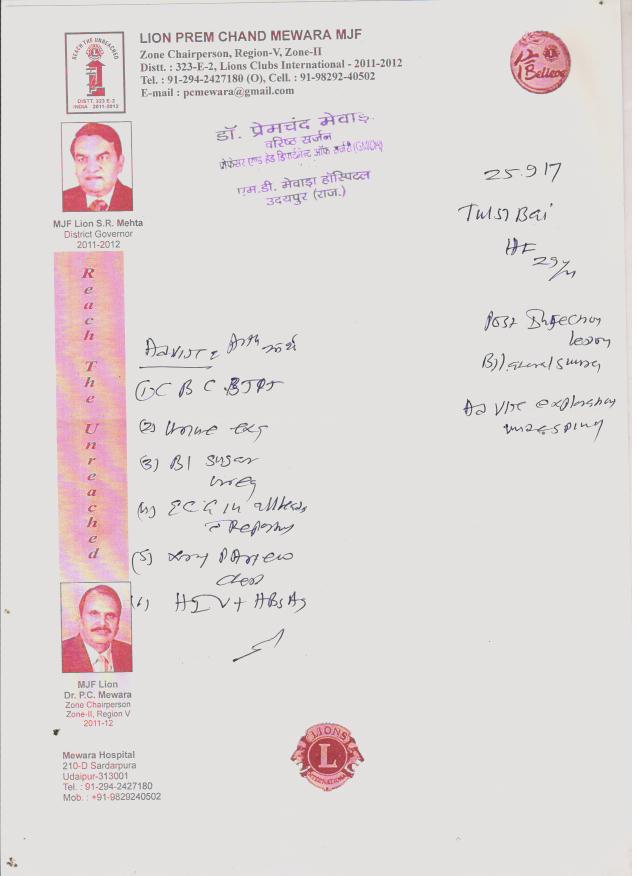 LION PREM CHAND MEWARA MJF
Zone Chairperson, Region-V, Zone-II
Distt. : 323-E-2, Lions Clubs International - 2011-2012
Tel. : 91-294-2427180 (O), Cell. : 91-98292-40502
E-mail : pcmewara@gmail.com
REACH THE UNREACHED
DISTT. 323 E-2
INDIA 2011-2012
Believe
डॉ. प्रेमचंद मेवाड़ा
वरिष्ठ सर्जन
प्रोफेसर एण्ड हेड डिपार्टमेन्ट ऑफ सर्जरी (GMCH)
एम.डी. मेवाड़ा हॉस्पिटल
उदयपुर (राज.)
25.9.17
Tulsi Bai
29y
MJF Lion S.R. Mehta
District Governor
2011-2012
Reach The Unreached
Post Injection
Advise
(1) C B C BTCT
(2) Urine
(3) Bl Sugar
Urea
(4) ECG in all leads
Reporting
(5) Xray PA view
Chest
(6) HIV + HBsAg
MJF Lion
Dr. P.C. Mewara
Zone Chairperson
Zone-II, Region V
2011-12
LIONS
L
INTERNATIONAL
Mewara Hospital
210-D Sardarpura
Udaipur-313001
Tel. : 91-294-2427180
Mob. : +91-9829240502